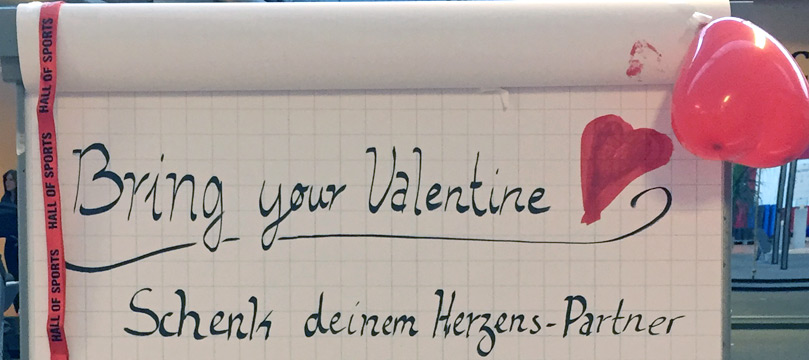 Bring your Valentine
Schenk deinem Herzens-Partner
HALL OF SPORTS
HALL OF SPORTS
HALL OF SPORTS